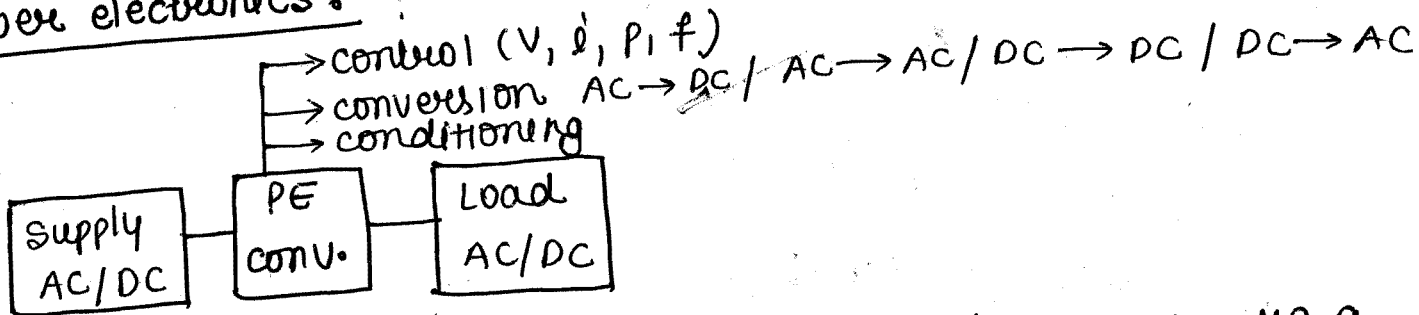 electronics:
→ control (V, i, P, f)
→ conversion AC → DC / AC → AC / DC → DC / DC → AC
→ conditioning
Supply
AC/DC
PE
conv.
Load
AC/DC